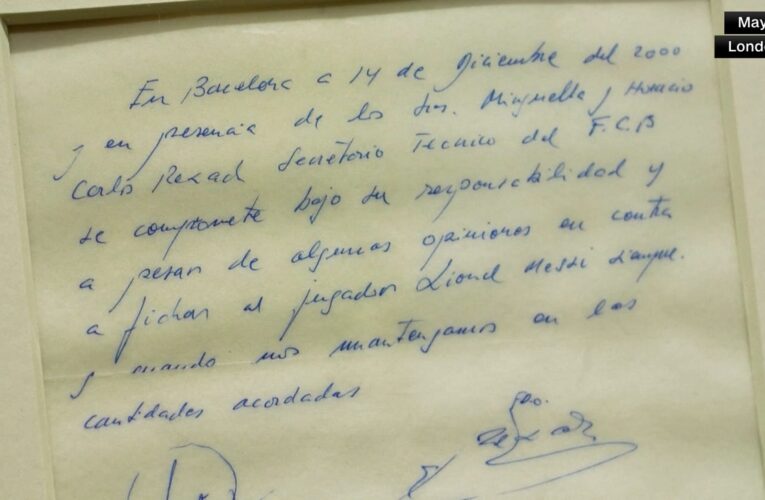 May
Londo
En Barcelona a 14 de Diciembre del 2000
y en presencia de los Srs. Minguella y Horacio
Carlos Rexach Secretario Técnico del F.C.B
se compromete bajo su responsabilidad y
a pesar de algunas opiniones en contra
a fichar al jugador Lionel Messi siempre
y cuando nos mantengamos en las
cantidades acordadas